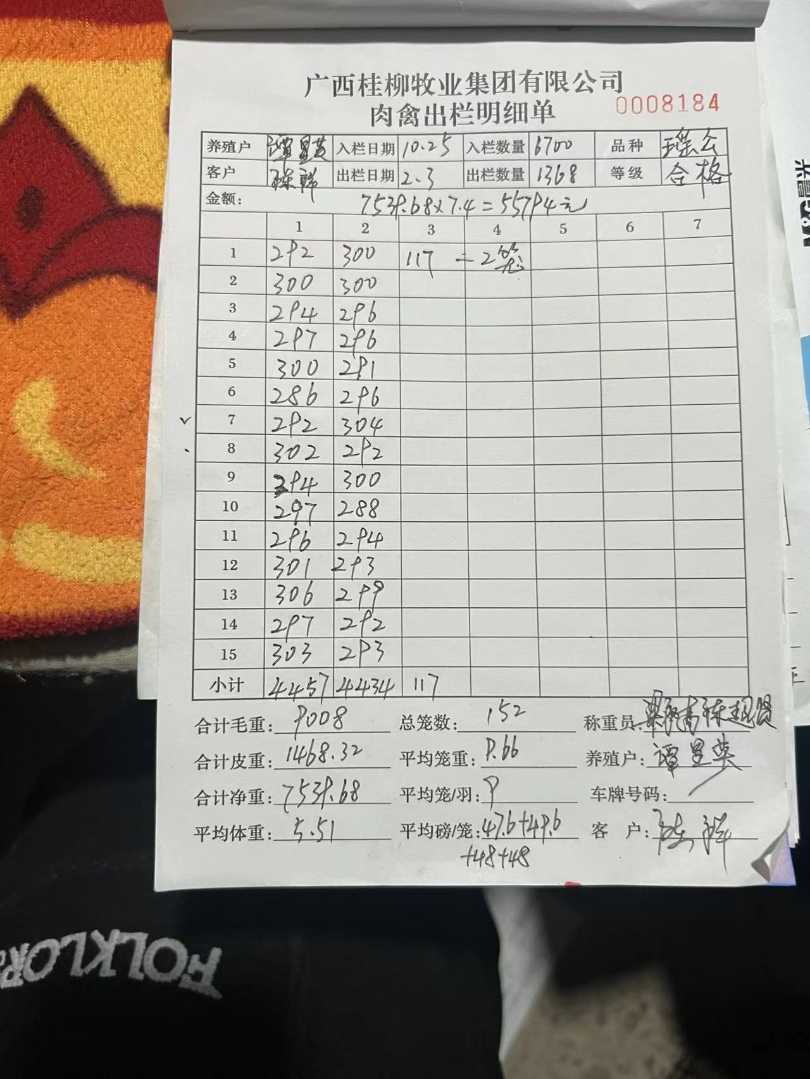 广西桂柳牧业集团有限公司
肉禽出栏明细单 0008184
养殖户 谭星英 入栏日期 10.25 入栏数量 6700 品种 瑶公
客户 陈祥 出栏日期 2.3 出栏数量 1368 等级 合格
金额: 7539.68×7.4=55794元
1 2 3 4 5 6 7
1 292 300 117 — 2笼
2 300 300
3 294 296
4 297 296
5 300 291
6 286 296
7 292 304
8 302 292
9 294 300
10 297 288
11 296 294
12 301 293
13 306 299
14 297 292
15 303 293
小计 4457 4434 117
合计毛重: 9008 总笼数: 152 称重员:
合计皮重: 1468.32 平均笼重: 9.66 养殖户: 谭星英
合计净重: 7539.68 平均笼/羽: 9 车牌号码:
平均体重: 5.51 平均磅/笼: 47.6+49.6 客 户: 陈祥
+48+48
FOLKLOR